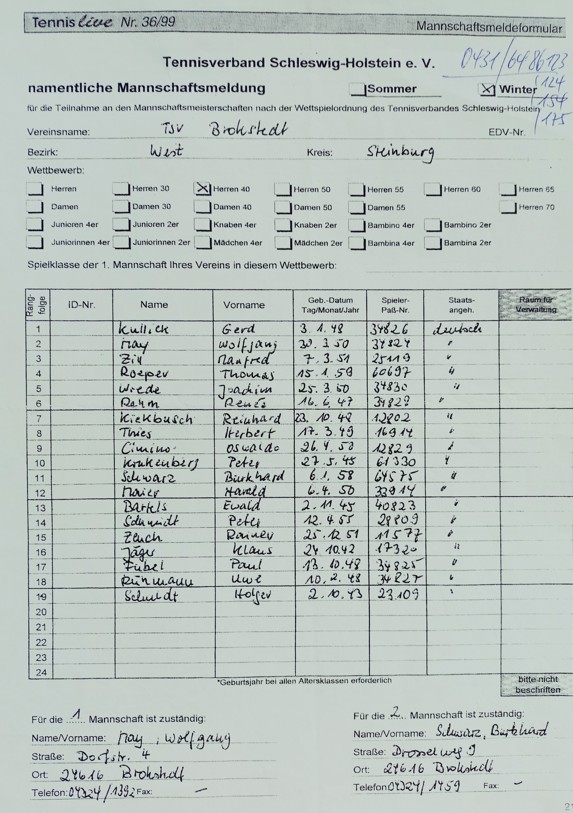 Tennis live Nr. 36/99
Mannschaftsmeldeformular
Tennisverband Schleswig-Holstein e. V.
0431/6486123
124
154
175
namentliche Mannschaftsmeldung Sommer Winter
für die Teilnahme an den Mannschaftsmeisterschaften nach der Wettspielordnung des Tennisverbandes Schleswig-Holstein
Vereinsname: TSV Brokstedt EDV-Nr.
Bezirk: West Kreis: Steinburg
Wettbewerb:
Herren Herren 30 Herren 40 Herren 50 Herren 55 Herren 60 Herren 65
Damen Damen 30 Damen 40 Damen 50 Damen 55 Herren 70
Junioren 4er Junioren 2er Knaben 4er Knaben 2er Bambino 4er Bambino 2er
Juniorinnen 4er Juniorinnen 2er Mädchen 4er Mädchen 2er Bambina 4er Bambina 2er
Spielklasse der 1. Mannschaft Ihres Vereins in diesem Wettbewerb:
Rang-folge ID-Nr. Name Vorname Geb.-Datum Tag/Monat/Jahr Spieler-Paß-Nr. Staats-angeh. Raum für Verwaltung
1 Kullick Gerd 3.1.48 34826 deutsch
2 May Wolfgang 30.3.50 34824 "
3 Manfred 7.3.51 25119 "
4 Roeper Thomas 15.1.59 60697 "
5 Wrede Joachim 25.3.60 34830 "
6 Rehm 16.6.47 34829 "
7 Kiekbusch Reinhard 23.10.48 12802 "
8 Thies Herbert 17.3.49 16914 "
9 Cimino Oswaldo 26.4.50 12829 "
10 Krukenberg Peter 27.5.45 61330 "
11 Schwarz Burkhard 6.1.58 64575 "
12 Maier Harald 6.4.50 33914 "
13 Bartels Ewald 2.11.45 40823 "
14 Schmidt Peter 12.4.55 28809 "
15 Rainer 25.12.51 11577 "
16 Jäger Klaus 24.10.42 17320 "
17 Fübel Paul 13.10.48 34825 "
18 Rühmann Uwe 10.2.48 34827 "
19 Schmidt Holger 2.10.43 23109 "
20
21
22
23
24
*Geburtsjahr bei allen Altersklassen erforderlich
bitte nicht beschriften
Für die 1. Mannschaft ist zuständig:
Name/Vorname: May, Wolfgang
Straße: Dorfstr. 4
Ort: 24616 Brokstedt
Telefon: 04324/1392 Fax: –
Für die 2. Mannschaft ist zuständig:
Name/Vorname: Schwarz, Burkhard
Straße: Drosselweg 9
Ort: 24616 Brokstedt
Telefon 04324/1459 Fax: –